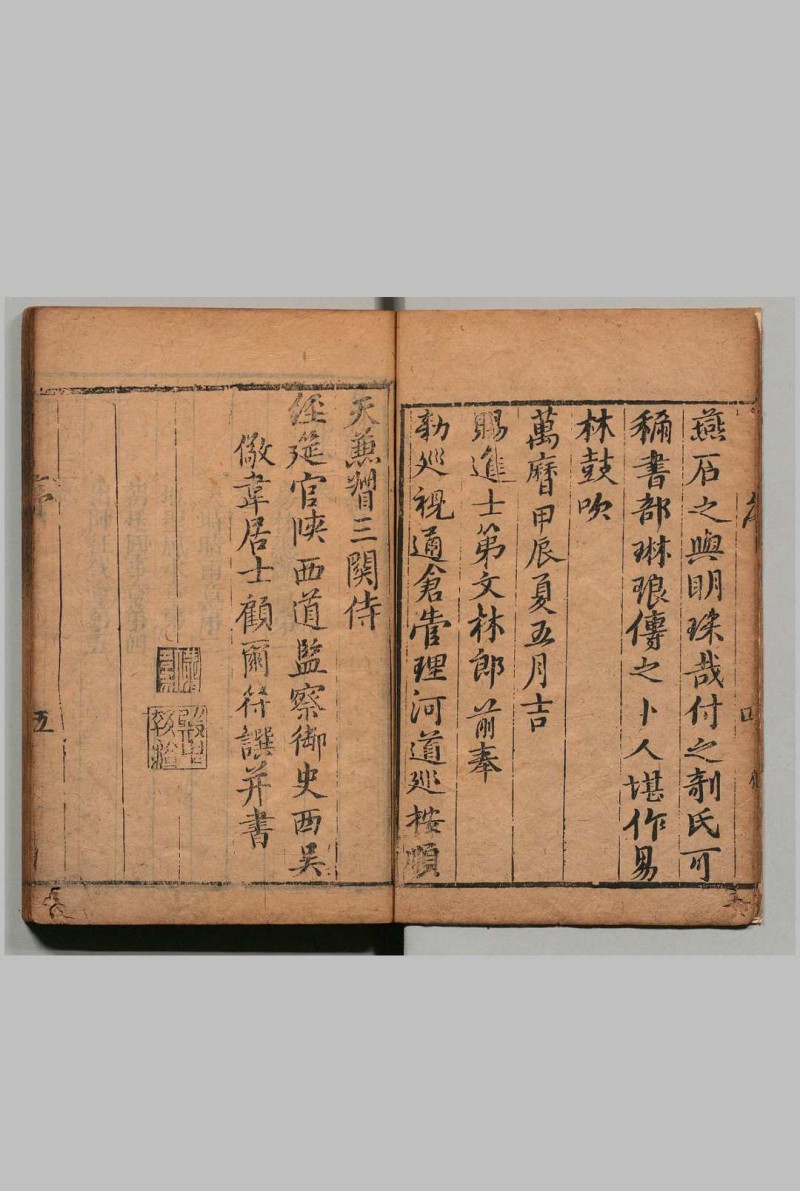 燕石之與明珠哉付之剞氏可
稱書部琳琅傳之卜人堪作易
林鼓吹
萬曆甲辰夏五月吉
賜進士第文林郎前奉
勅巡視通倉管理河道巡按順
天兼督三關侍
經筵官陝西道監察御史西吳
儆韋居士顧爾行譔并書
五